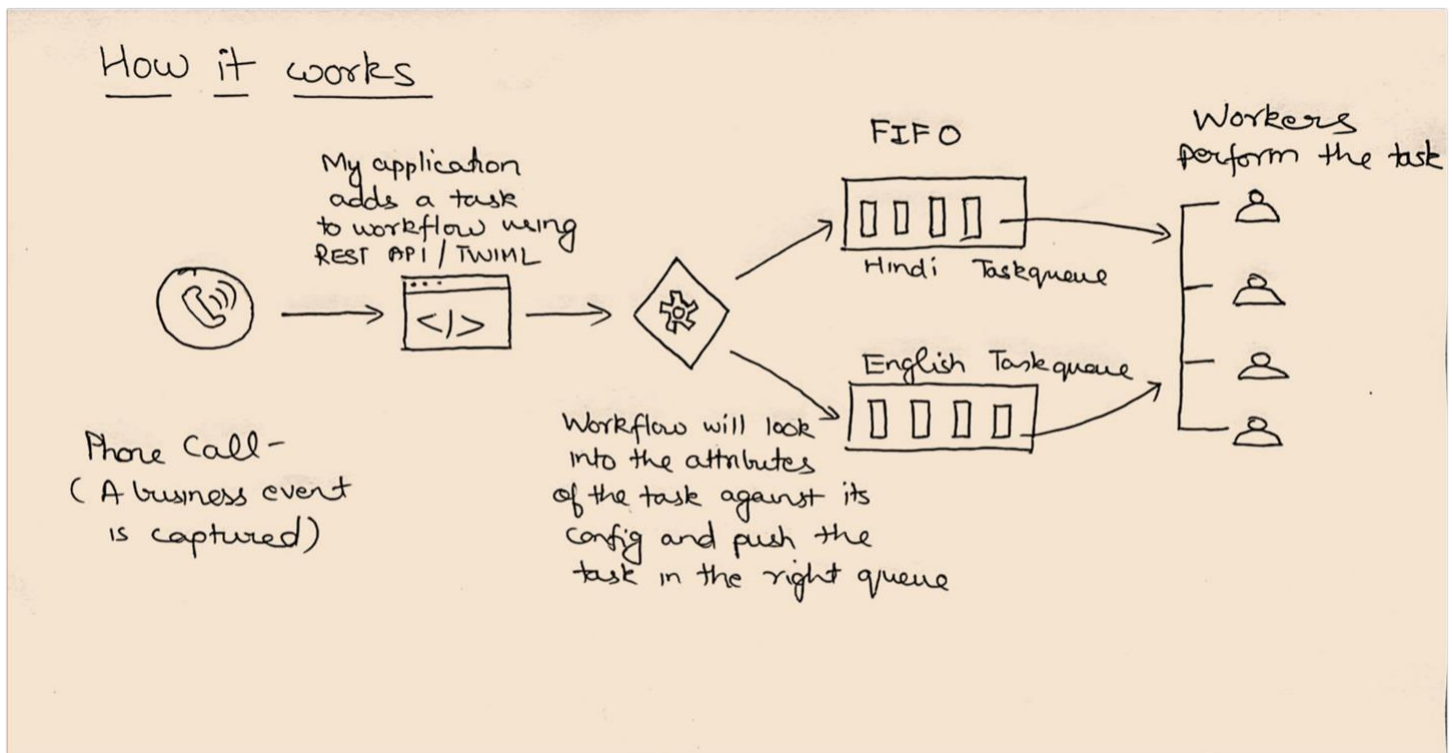 How it works
My application
adds a task
to workflow using
REST API / TWIML
</>
Phone Call -
( A business event
is captured)
Workflow will look
into the attributes
of the task against its
config and push the
task in the right queue
FIFO
Hindi Taskqueue
English Taskqueue
Workers
perform the task